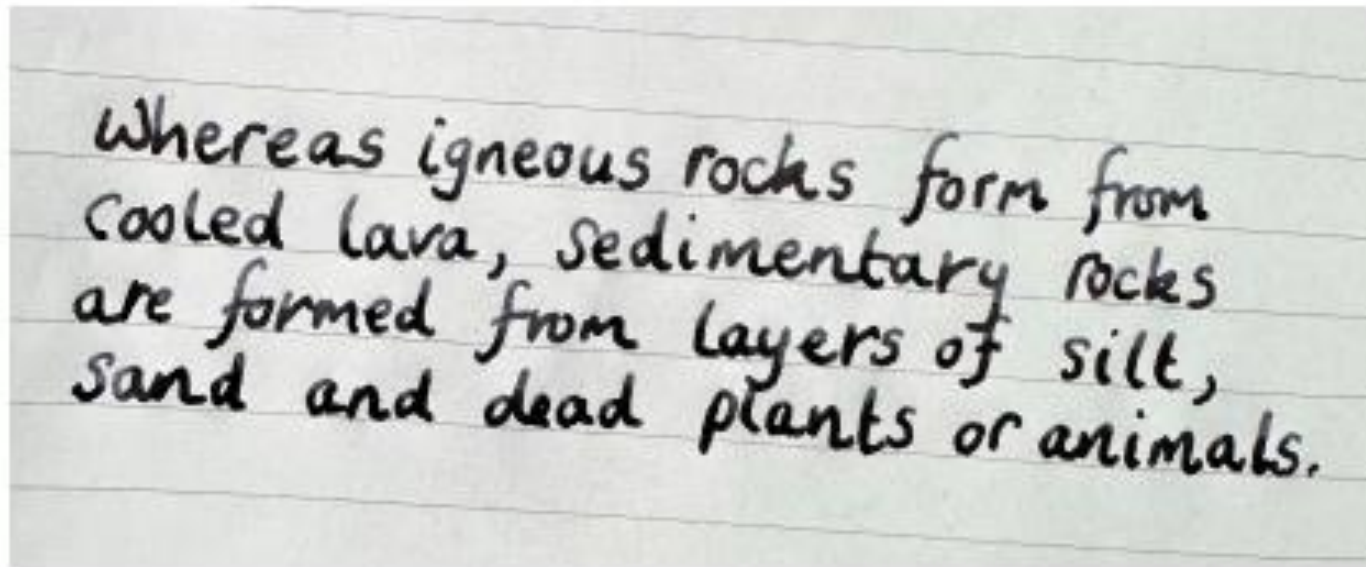 Whereas igneous rocks form from
cooled lava, sedimentary rocks
are formed from layers of silt,
sand and dead plants or animals.